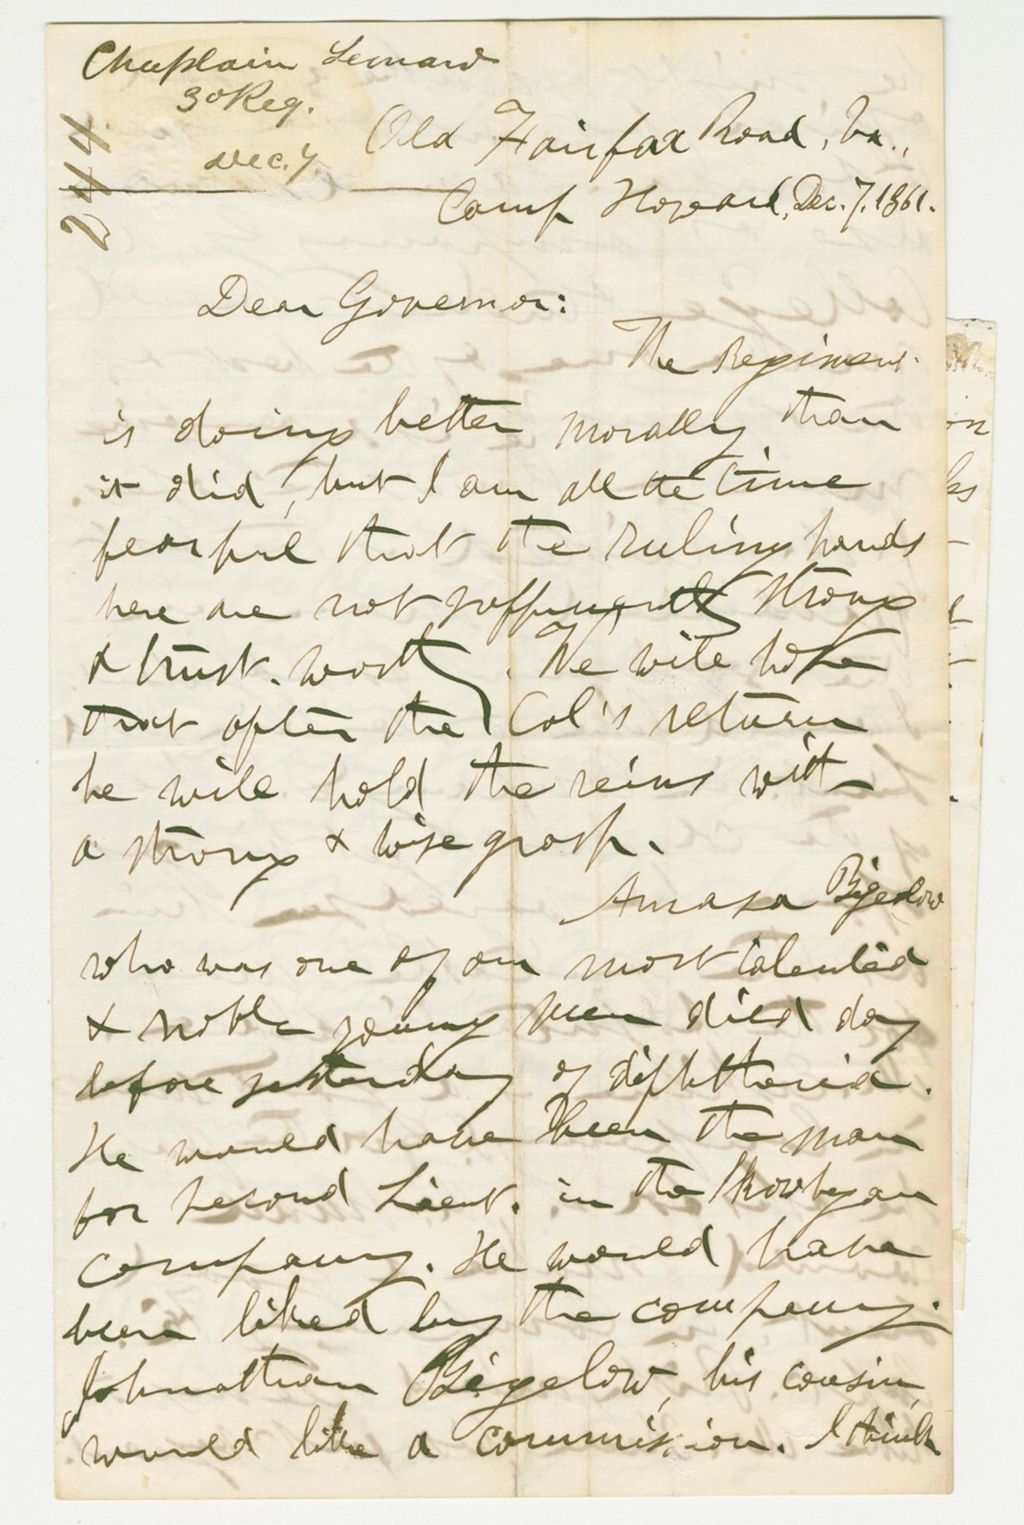 Chaplain Leonard
3d Reg.
Dec. 7.
244
Old Fairfax Road, Va.,
Camp Howard, Dec. 7, 1861.
Dear Governor:
The Regiment
is doing better morally than
it did, but I am all the time
fearful that the ruling hands
here are not sufficiently strong
& trust-worthy. We will hope
that after the Col's return
he will hold the reins with
a strong & wise grasp.
Amasa Bigelow
who was one of our most talented
& noble young men died day
before yesterday of diphtheria.
He would have been the man
for second Lieut. in the Skowhegan
company. He would have
been liked by the company.
Johnathan Bigelow, his cousin,
would like a commission. I think